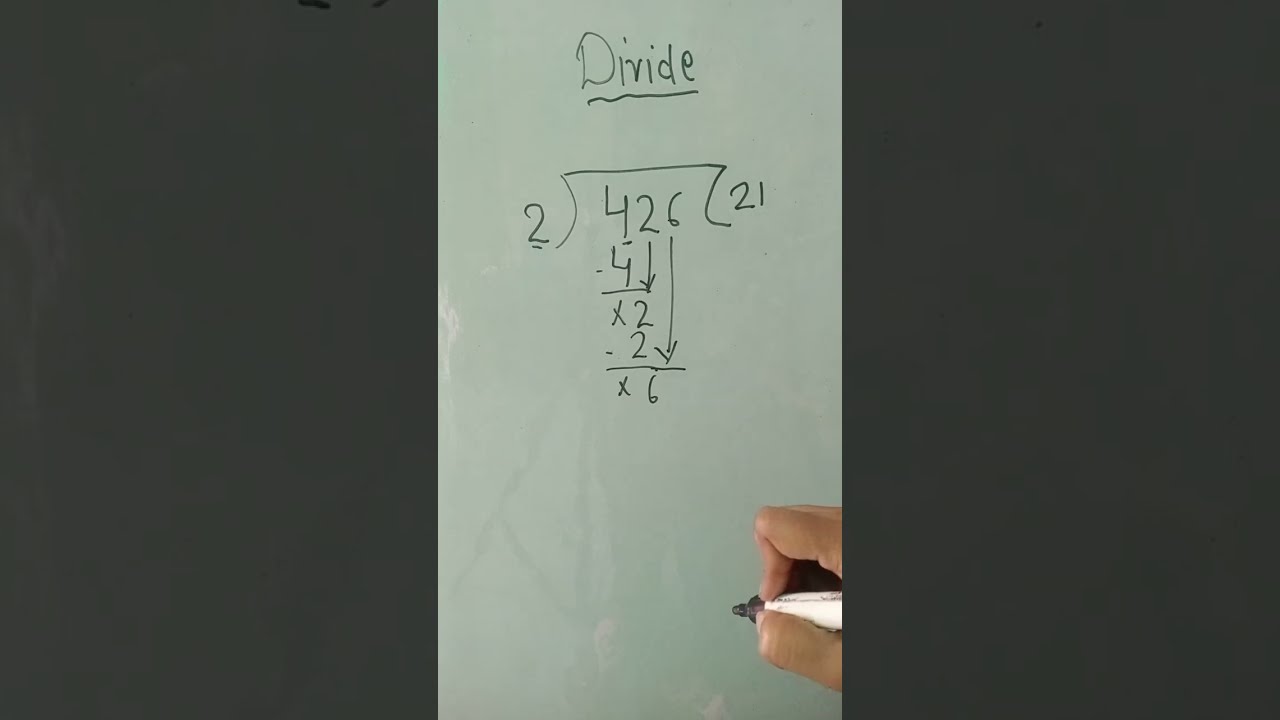 Divide
2 ) 426 ( 21
- 4
x 2
- 2
x 6